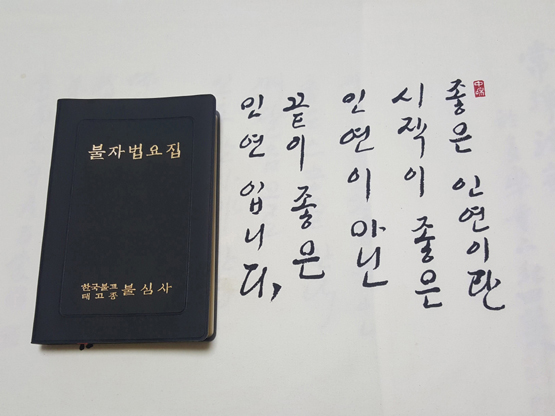 불자법요집
한국불교
태고종
불심사
좋은 인연이란
시작이 좋은
인연이 아닌
끝이 좋은
인연 입니다,